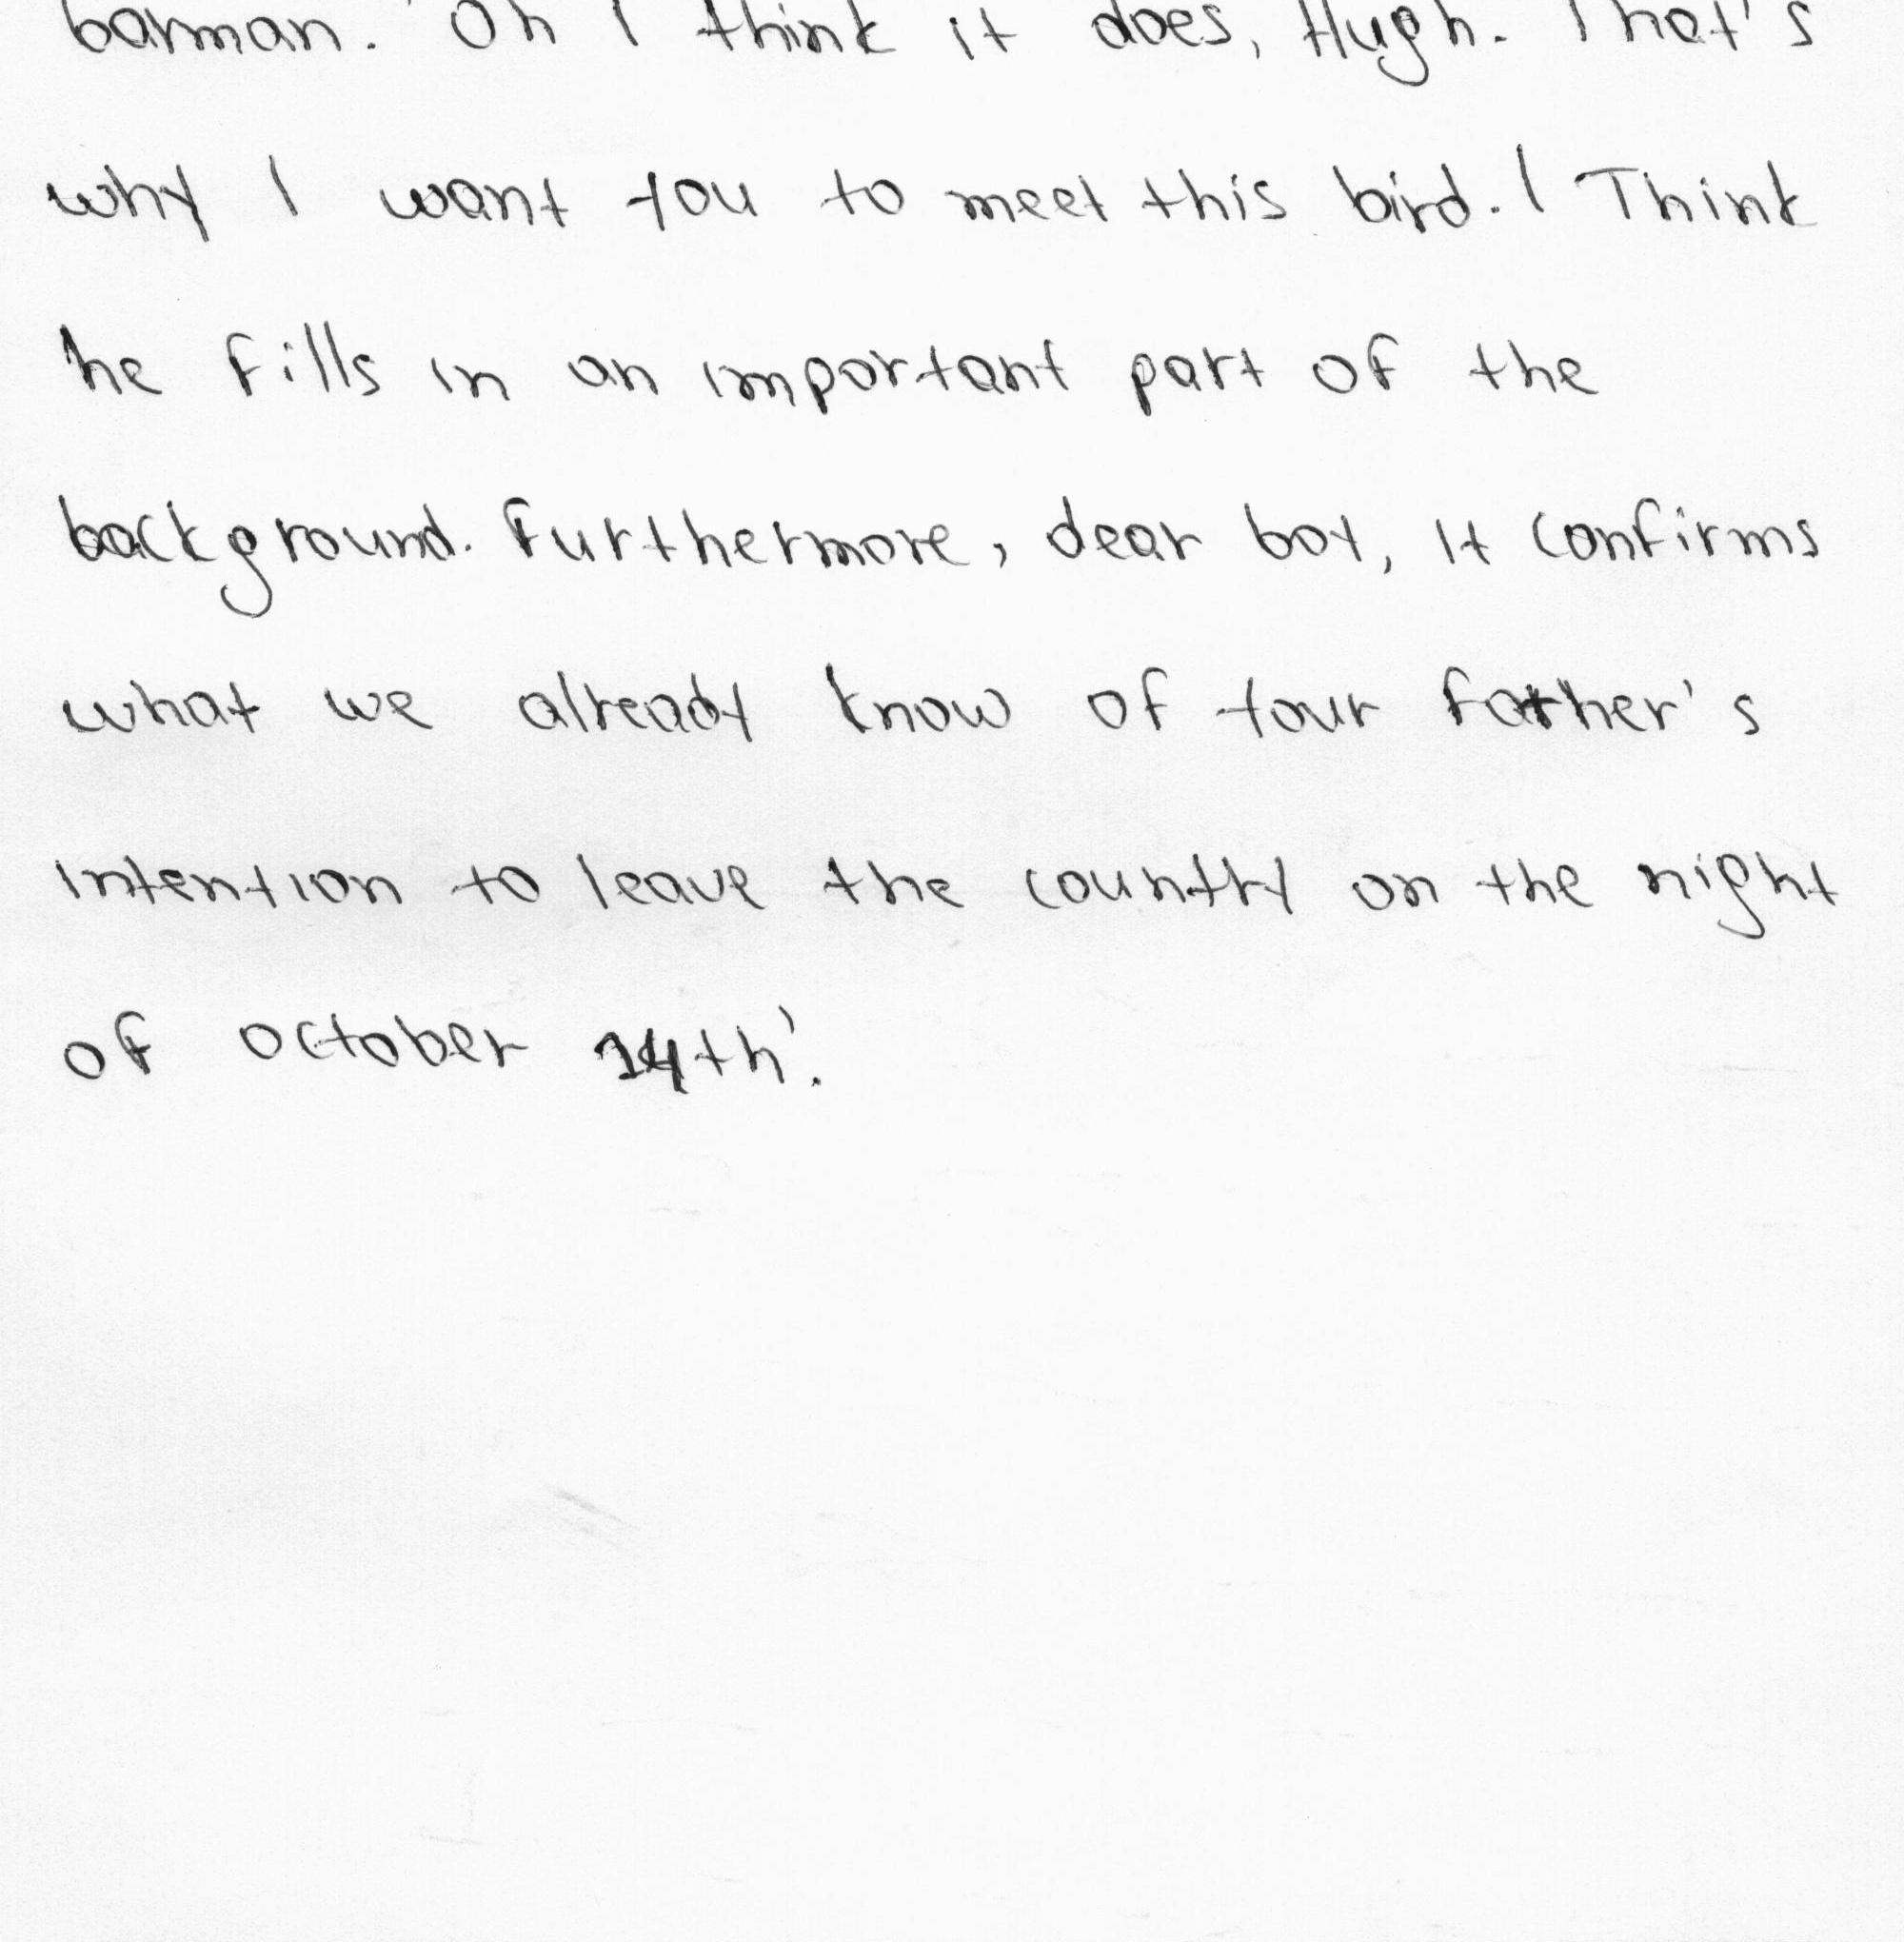 barman. 'Oh I think it does, Hugh. That's
why I want you to meet this bird. I Think
he fills in an important part of the
background. Furthermore, dear boy, it confirms
what we already know of your father's
intention to leave the country on the night
of October 14th'.